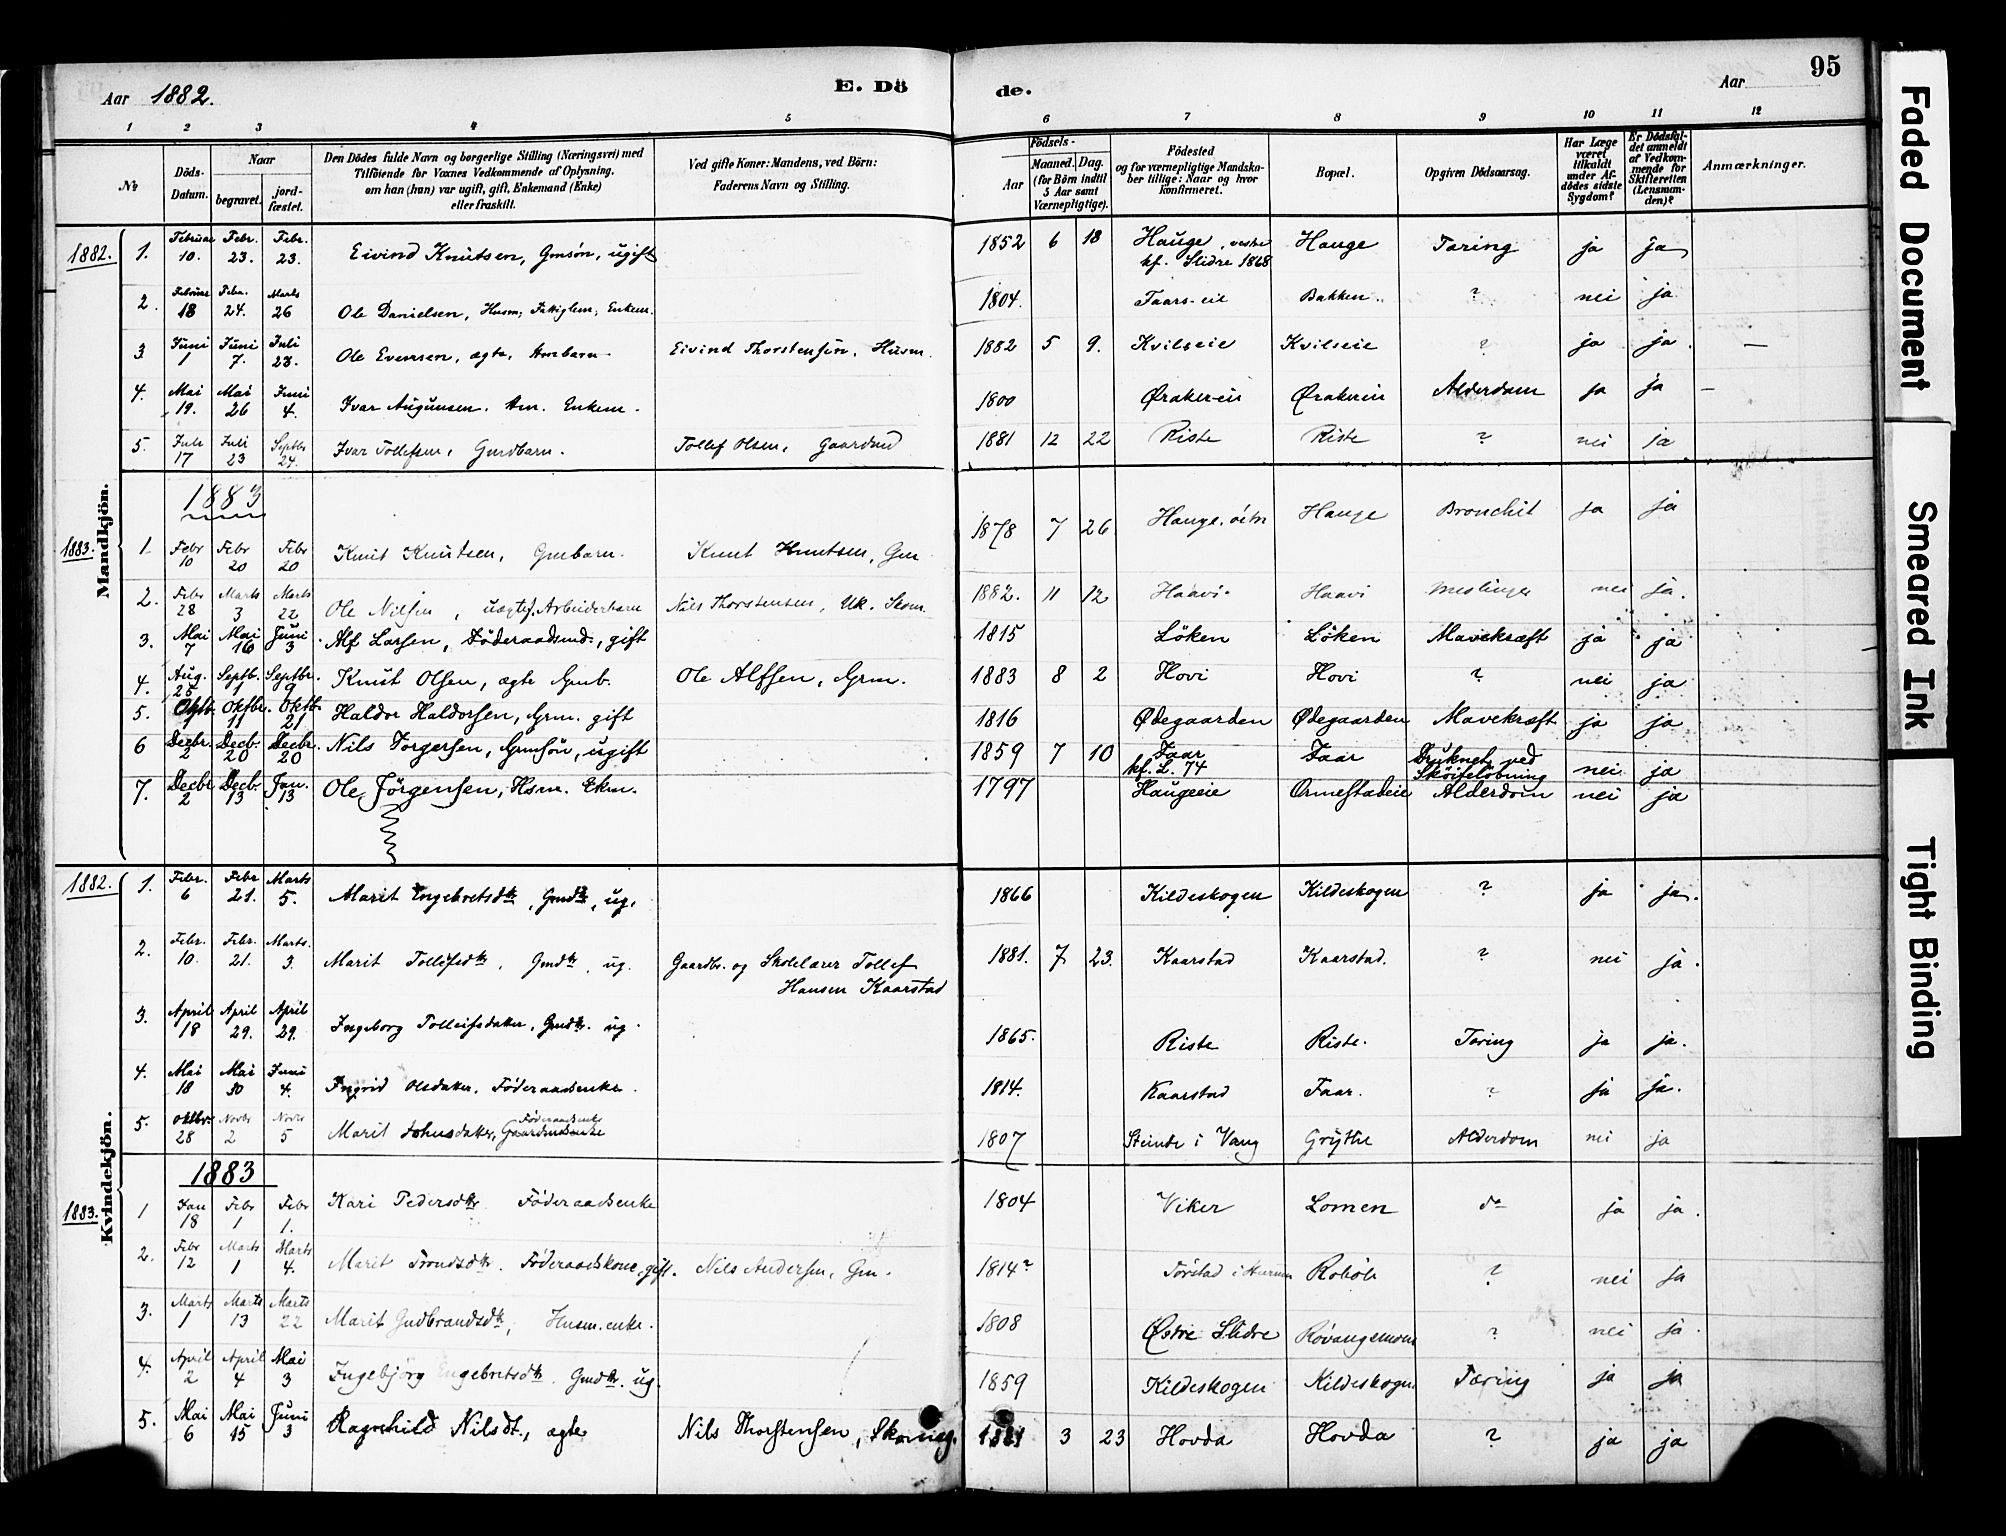 Aar 1882. E. Dö de. Aar 95
1 2 3 4 5 6 7 8 9 10 11 12
№ Döds-Datum. Naar begravet. jord-fæstet. Den Dödes fulde Navn og borgerlige Stilling (Næringsvei) med Tilföiende for Voxnes Vedkommende af Oplysning, om han (hun) var ugift, gift, Enkemand (Enke) eller fraskilt. Ved gifte Koner: Mandens, ved Börn: Faderens Navn og Stilling. Födsels- Aar Maaned. Dag. (for Börn indtil 5 Aar samt Værnepligtige). Födested og for værnepligtige Mandskaber tillige: Naar og hvor konfirmeret. Bopæl. Opgiven Dödsaarsag. Har Læge været tilkaldt under Afdödes sidste Sygdom? Er Dödsfaldet anmeldt af Vedkommende for Skifteretten (Lensmanden)? Anmærkninger.
Mandkjön.
1882. 1. Februar 10. Febr. 23. Febr. 23. Eivind Knutsen, Gmsøn, ugift 1852 6 18 Hauge, vestre kf. Slidre 1868 Hauge Tæring ja ja
2. Februar 18 Febr. 24. Marts 26 Ole Danielsen, Husm, Fattiglem, Enkem. 1804. Faars-eie Bakken. ? nei ja
3 Juni 1 Juni 7. Juli 23. Ole Evensen, ægte, Ambarn Eivind Thorstensen, Husm. 1882 5 9. Kvilseie Kvilseie ? ja ja. —
4. Mai 19. Mai 26 Juni 4. Ivar Augunsen. Am. Enkem. 1800 Ørakereie Ørakereie Alderdom ja ja —
5. Juli 17 Juli 23 Septbr 24. Ivar Tollefsen, Gmdbarn. Tollef Olsen, Gaardmd 1881 12 22 Riste Riste ? nei ja
1883
1883. 1 Febr 10 Febr 20 Febr 20 Knut Knutsen, Gmbarn. Knut Knutsen, Gm 1878 7 26 Hauge, östre Hauge Bronchit ja ja
2. Febr 28 Marts 3 Marts 22 Ole Nilsen, uægtef. Arbeiderbarn Nils Thorstensen, Uk. Skom. 1882. 11 12 Haavi Haavi Meslinger nei ja.
3. Mai 7 Mai 16 Juni 3 Alf Larsen, Föderaadsmd., gift 1815 Löken Löken Mavekræft ja ja
4. Aug. 25 Septb. 1 Septbr. 9 Knut Olsen, ægte Gmb. Ole Alfsen, Grm. 1883 8 2 Hovi Hovi ? nei ja
5. Oktb. 1 Oktbr. 11 Oktb. 21 Haldor Haldorsen, Grm. gift 1816 Ødegaarden Ødegaarden Mavekræft ja ja
6 Decbr. 2 Decb. 20 Decbr. 20 Nils Torgersen, Grmsön, ugift 1859 7 10 Faar kf. S. 74 Faar Druknet ved Sköitelöbning nei ja
7. Decbr 2 Decb. 13 Jan. 13 Ole Jörgensen, Hsm. Ekm. 1797 Haugeeie Ormestadeie Alderdom nei ja
Kvindekjön.
1882. 1. Febr. 6 Febr 21. Marts 5. Marit Engebretsdtr, Gmdtr, ug. 1866 Kildeskogen Kildeskogen ? ja ja.
2. Febr. 10. Febr. 21. Marts. 3. Marit Tollefsdtr, Gmdtr, ug. Gaardbr. og Skolelærer Tollef Hansen Kaarstad 1881. 7 23. Kaarstad Kaarstad. ? nei ja.
3. April 18 April 29. April 29. Ingeborg Tolleifsdatter, Gmdtr. ug. 1865. Riste Riste. Tæring ja ja.
4. Mai 18 Mai 30 Juni 4. Ingrid Olsdatter, Föderaadsenke. 1814. Kaarstad Faar. ? ja ja.
5. Oktbr. 28 Novbr 2 Novbr 5 Marit Johnsdatter, Föderaadsenke Gaardmdsenke 1807 Steinde i Vang Grythe Alderdom nei ja
1883
1883. 1 Jan 18 Febr 1 Febr 1. Kari Pedersdtr. Föderaadsenke 1804 Viker Lomen do ja ja.
2. Febr 12 Marts 1 Marts 4. Marit Trondsdtr. Föderaadskone, gift. Nils Andersen, Gm. 1814? Törstad i Hurum Robøle ? nei ja
3. Marts 1 Marts 13 Marts 22 Marit Gudbrandsdtr, Husm.enke. 1808 Østre Slidre Røvangsmoen ? nei ja.
4. April 2 April 4 Mai 3 Ingebjörg Engebretsdtr. Gmdtr. ug. 1859 Kildeskogen Kildeskogen Tæring ja ja
5. Mai 6 Mai 15 Juni 3 Ragnhild Nilsdt., ægte Nils Thorstensen, Skomag. 3 23 Hovda Hovda ? ja ja
Faded Document
Smeared Ink
Tight Binding